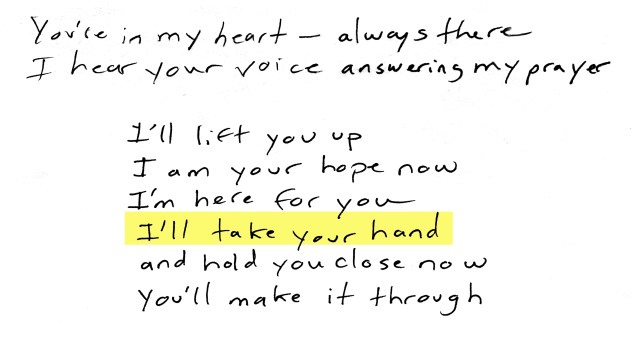 You're in my heart – always there
I hear your voice answering my prayer
I'll lift you up
I am your hope now
I'm here for you
I'll take your hand
and hold you close now
You'll make it through